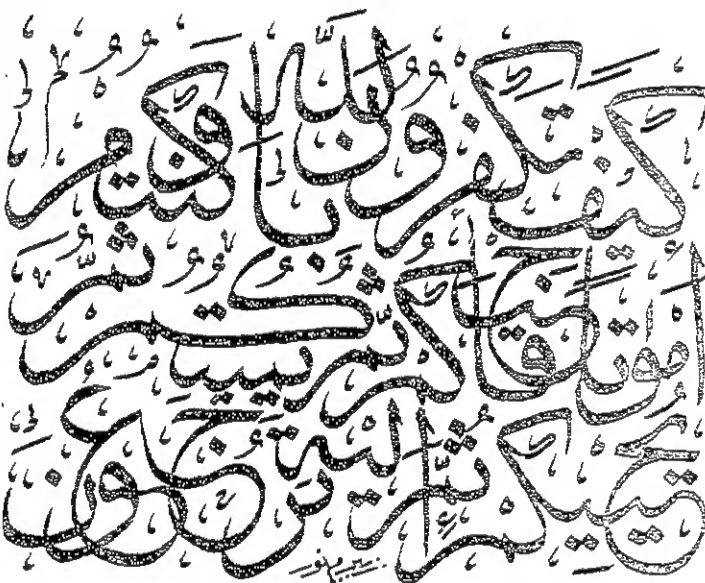 كَيْفَ تَكْفُرُونَ بِاللَّهِ وَكُنتُمْ
أَمْوَاتًا فَأَحْيَاكُمْ ثُمَّ يُمِيتُكُمْ ثُمَّ
يُحْيِيكُمْ ثُمَّ إِلَيْهِ تُرْجَعُونَ